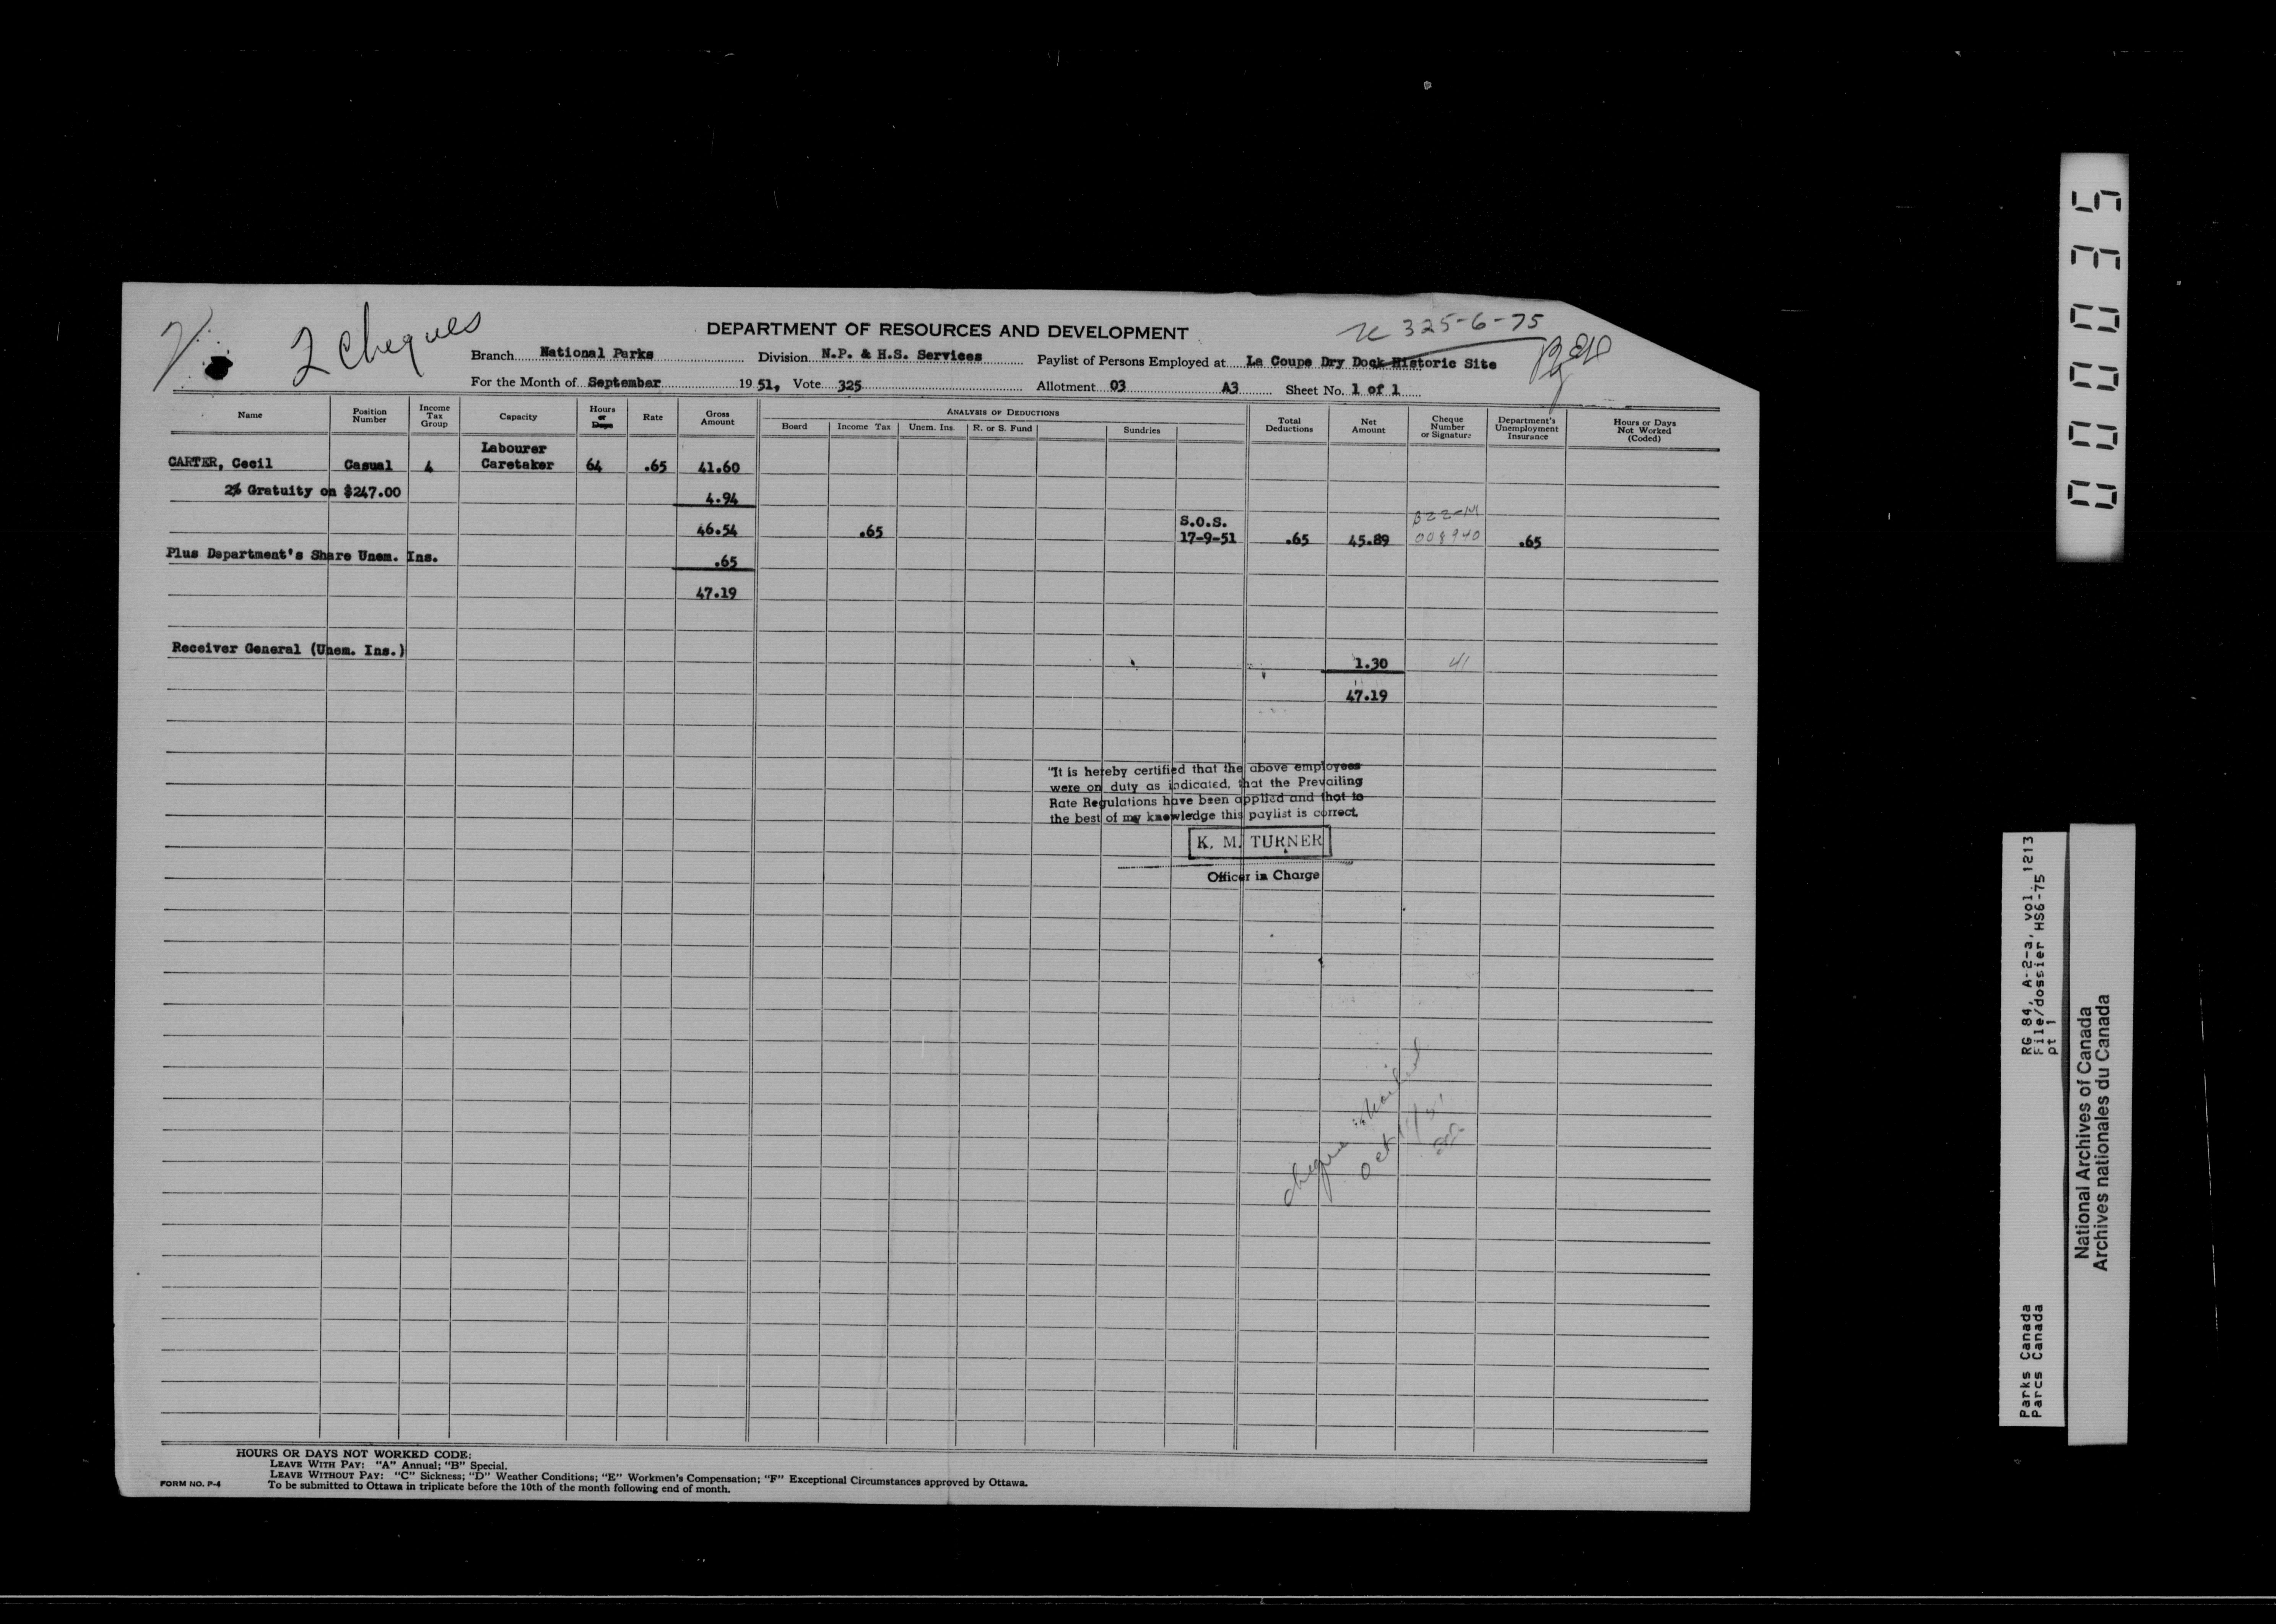 2 Cheques
DEPARTMENT OF RESOURCES AND DEVELOPMENT
325-6-75
Branch National Parks Division N.P. & H.S. Services Paylist of Persons Employed at La Coupe Dry Dock Historic Site
For the Month of September 19 51, Vote 325 Allotment 03 A3 Sheet No. 1 of 1
Name Position Number Income Tax Group Capacity Hours or Days Rate Gross Amount ANALYSIS OF DEDUCTIONS Total Deductions Net Amount Cheque Number or Signature Department's Unemployment Insurance Hours or Days Not Worked (Coded)
Board Income Tax Unem. Ins. R. or S. Fund Sundries
Labourer
CARTER, Cecil Casual 4 Caretaker 64 .65 41.60
2% Gratuity on $247.00 4.94
S.O.S. B22-M
46.54 .65 17-9-51 .65 45.89 008940 .65
Plus Department's Share Unem. Ins. .65
47.19
Receiver General (Unem. Ins.) 1.30 41
47.19
"It is hereby certified that the above employees
were on duty as indicated, that the Prevailing
Rate Regulations have been applied and that to
the best of my knowledge this paylist is correct.
K. M. TURNER
Officer in Charge
cheque mailed
Oct 11/51
HOURS OR DAYS NOT WORKED CODE:
LEAVE WITH PAY: "A" Annual; "B" Special.
LEAVE WITHOUT PAY: "C" Sickness; "D" Weather Conditions; "E" Workmen's Compensation; "F" Exceptional Circumstances approved by Ottawa.
FORM NO. P-4 To be submitted to Ottawa in triplicate before the 10th of the month following end of month.
000035
Parks Canada RG 84, A-2-a, vol. 1213
Parcs Canada File/dossier HS6-75
pt 1
National Archives of Canada
Archives nationales du Canada